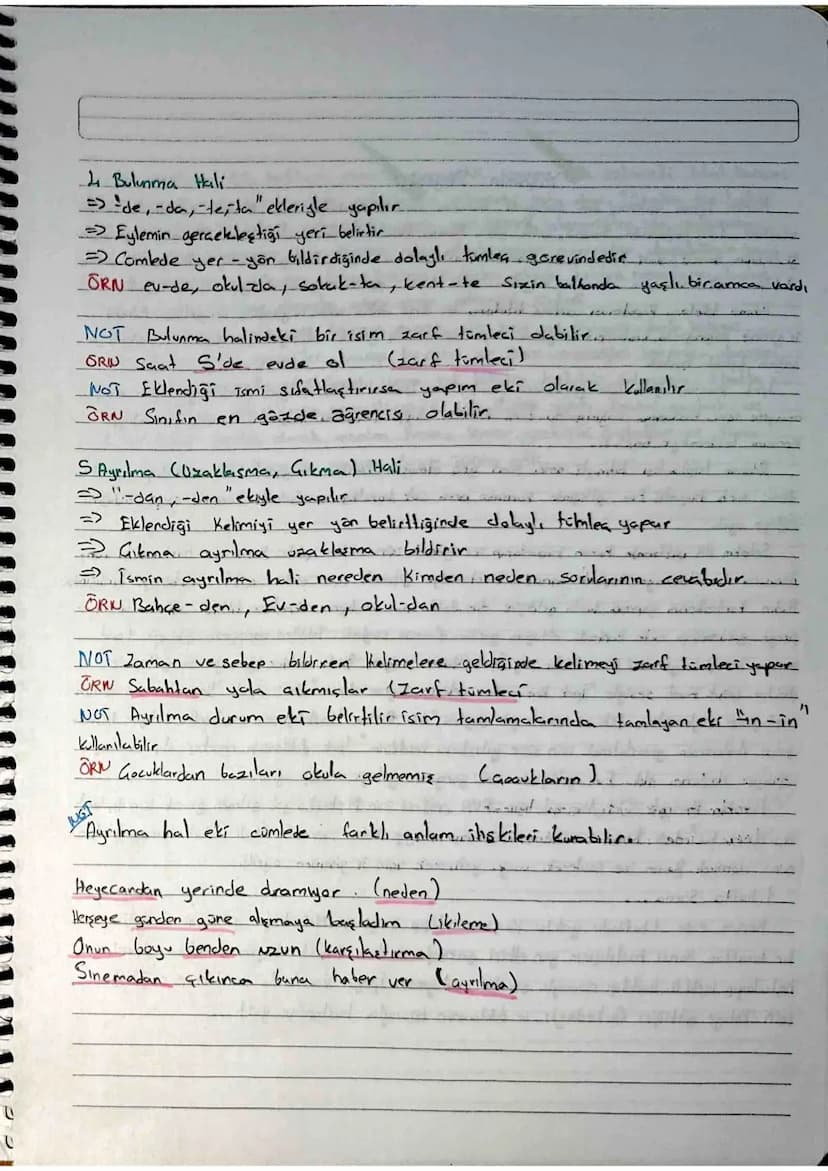 4 Bulunma Hali
=> "de, -da, -te, -ta" ekleriyle yapılır
=> Eylemin gerçekleştiği yeri belirtir
=> Comlede yer - yön bildirdiğinde dolaylı tümleç görevindedir
ÖRN ev-de, okul-da, sokak-ta, kent-te Sizin balkonda yaşlı bir amca vardı
NOT Bulunma halindeki bir isim zarf tümleci olabilir.
ÖRN Saat 5'de evde ol (zarf tümleci)
NOT Eklendiği ismi sıfatlaştırırsa yapım eki olarak kullanılır
ÖRN Sınıfın en gözde öğrencisi olabilir.
5 Ayrılma (Uzaklaşma, Çıkma) Hali
=> "-dan, -den" ekiyle yapılır
=> Eklendiği Kelimiyi yer yön belirttiğinde dolaylı tümleç yapar
=> Çıkma ayrılma uzaklaşma bildirir
=> İsmin ayrılma hali nereden Kimden neden sorularının cevabıdır.
ÖRN Bahçe-den, Ev-den, okul-dan
NOT Zaman ve sebep bildiren Kelimelere geldiğinde kelimeyi zarf tümleci yapar
ÖRN Sabahtan yola çıkmışlar (Zarf tümleci
NOT Ayrılma durum eki belirtilir isim tamlamalarında tamlayan eki "ın-in"
kullanılabilir
ÖRN Çocuklardan bazıları okula gelmemiş (Çocukların)
NOT
Ayrılma hal eki cümlede farklı anlam ilişkileri kurabilir.
Heyecandan yerinde duramıyor. (neden)
Herşeye günden güne alışmaya başladım (ikileme)
Onun boyu benden uzun (karşılaştırma)
Sinemadan çıkınca bana haber ver (ayrılma)